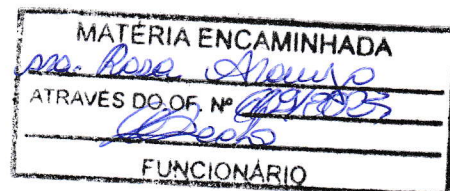 MATÉRIA ENCAMINHADA
Rosa Araujo
ATRAVÉS DO OF. Nº
FUNCIONÁRIO